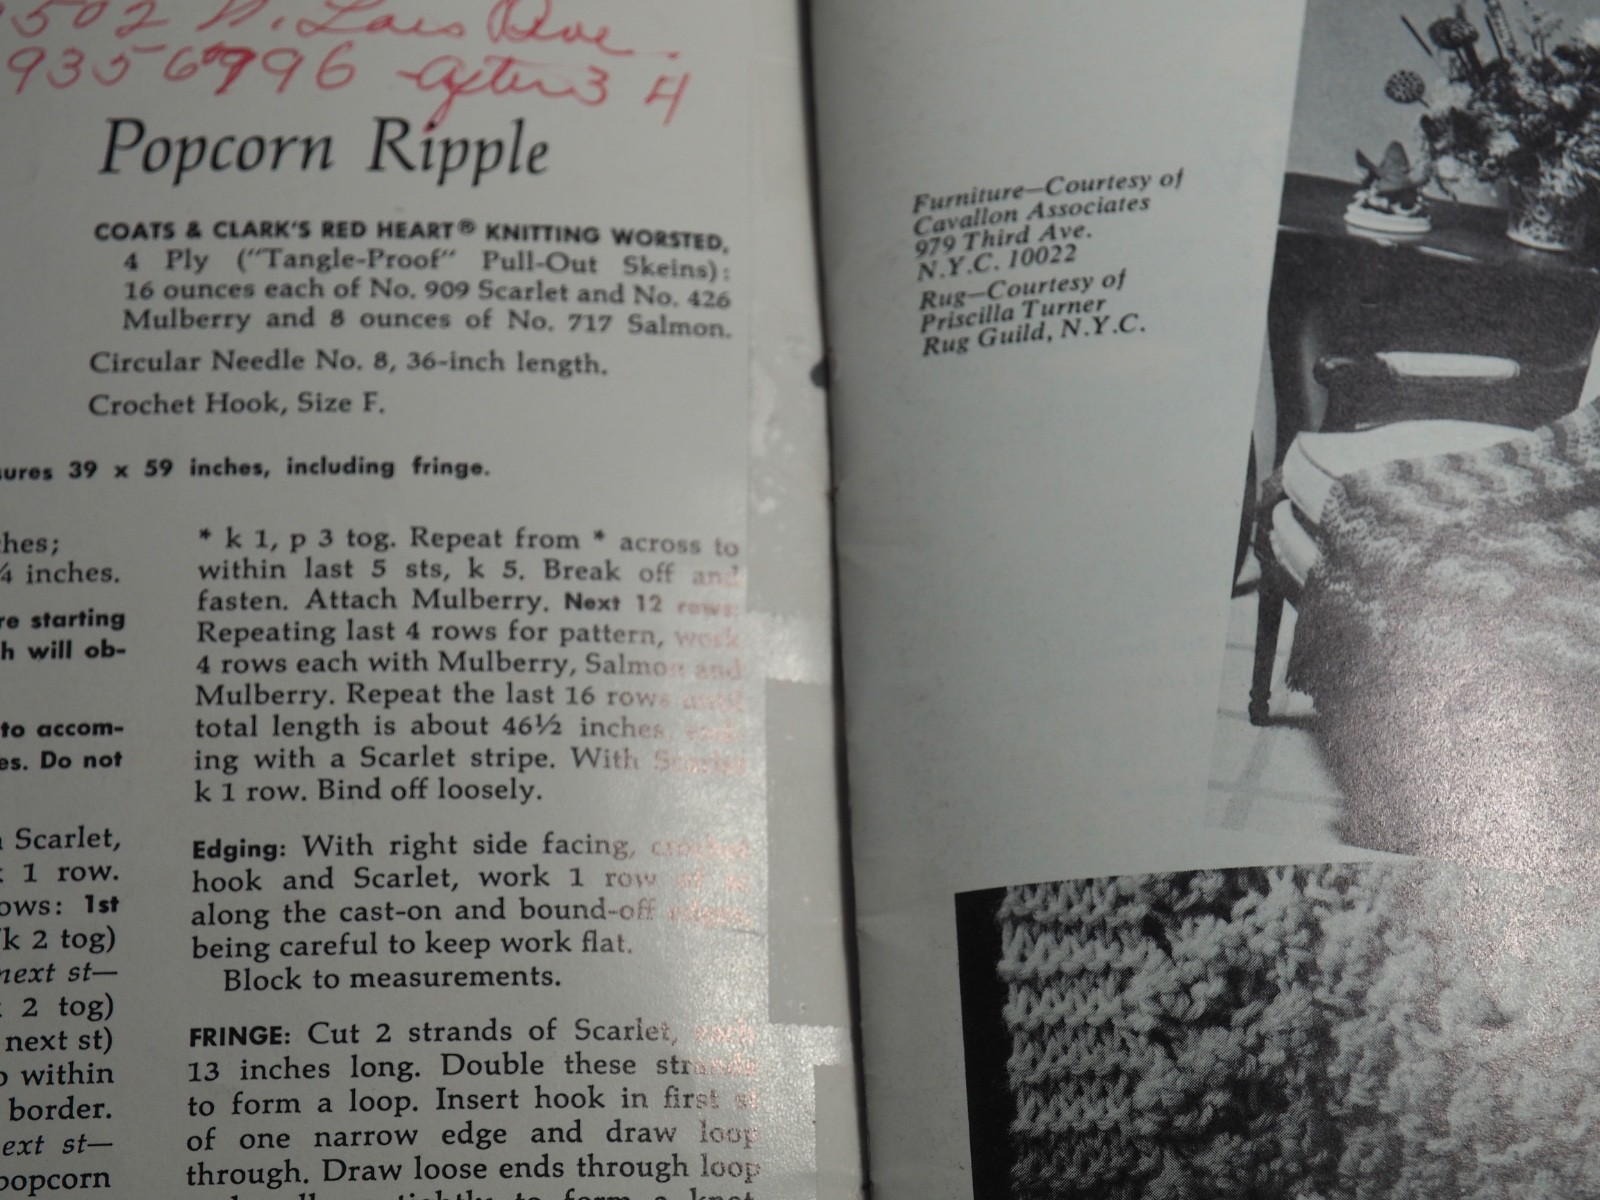 502 N.
9356996 after 3 4
Popcorn Ripple
COATS & CLARK'S RED HEART® KNITTING WORSTED,
4 Ply ("Tangle-Proof" Pull-Out Skeins):
16 ounces each of No. 909 Scarlet and No. 426
Mulberry and 8 ounces of No. 717 Salmon.
Circular Needle No. 8, 36-inch length.
Crochet Hook, Size F.
ures 39 x 59 inches, including fringe.
hes;
¼ inches.
re starting
h will ob-
to accom-
es. Do not
Scarlet,
1 row.
ows: 1st
k 2 tog)
next st—
2 tog)
next st)
within
border.
ext st—
popcorn
* k 1, p 3 tog. Repeat from * across to
within last 5 sts, k 5. Break off and
fasten. Attach Mulberry. Next 12 rows:
Repeating last 4 rows for pattern, work
4 rows each with Mulberry, Salmon and
Mulberry. Repeat the last 16 rows until
total length is about 46½ inches, end-
ing with a Scarlet stripe. With Scarlet
k 1 row. Bind off loosely.
Edging: With right side facing, crochet
hook and Scarlet, work 1 row
along the cast-on and bound-off edges,
being careful to keep work flat.
Block to measurements.
FRINGE: Cut 2 strands of Scarlet, each
13 inches long. Double these strands
to form a loop. Insert hook in first st
of one narrow edge and draw loop
through. Draw loose ends through loop
tightly to form a knot
Furniture—Courtesy of
Cavallon Associates
979 Third Ave.
N.Y.C. 10022
Rug—Courtesy of
Priscilla Turner
Rug Guild, N.Y.C.